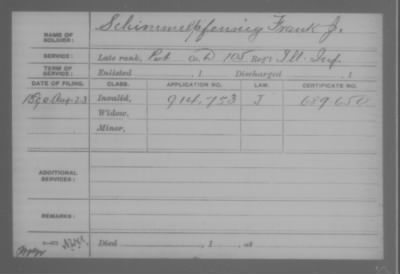 NAME OF SOLDIER: Schimmelpfennig Frank J.
SERVICE: Late rank, Pvt Co. D 105 Reg't Ill. Inf.
TERM OF SERVICE: Enlisted , 1 Discharged , 1
DATE OF FILING. CLASS. APPLICATION NO. LAW. CERTIFICATE NO.
1890 Aug. 23 Invalid, 914,753 J 659,650
Widow,
Minor,
ADDITIONAL SERVICES:
REMARKS:
Died , 1 , at